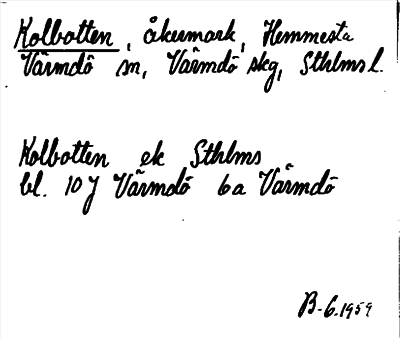 Kolbotten, åkermark, Hemmesta
Värmdö sn, Värmdö skg, Sthlms l.
Kolbotten ek Sthlms
bl. 10 J Värmdö 6a Värmdö
B-6.1959